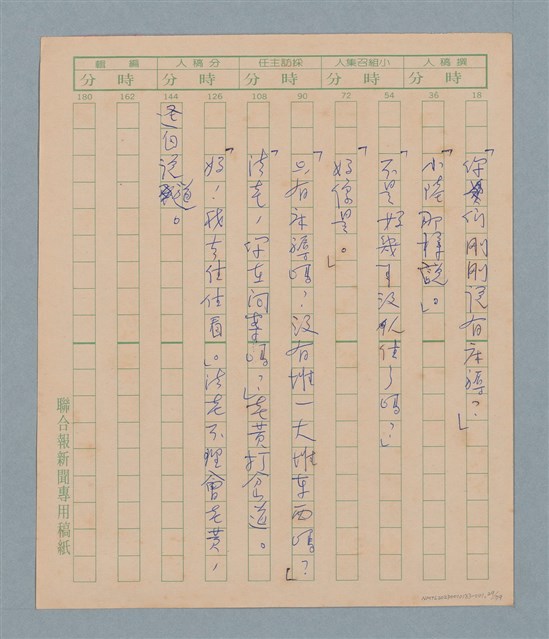 撰稿人 小組召集人 採訪主任 分稿人 編輯
時 分 時 分 時 分 時 分 時 分
18 36 54 72 90 108 126 144 162 180
「你們剛剛說有床褥？」
「小陸那樣說。」
「不是好幾年沒人住了嗎？」
「好像是。」
「只有床褥嗎？沒有堆一大堆東西嗎？」
「法老，你在問案嗎？」老黃打岔道。
「好！我去住住看。」法老不理會老黃，
逕自說道。
聯合報新聞專用稿紙